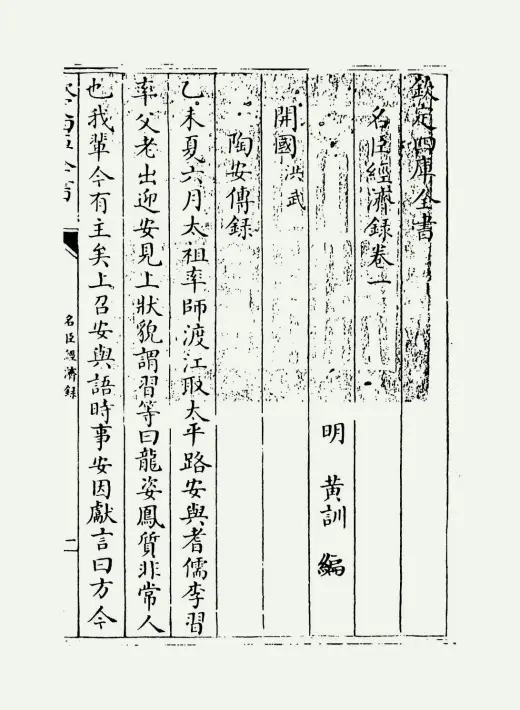 欽定四庫全書
名臣經濟錄卷一
明 黃訓 編
開國 洪武
陶安傳錄
乙未夏六月太祖率師渡江取太平路安與耆儒李習
率父老出迎安見上狀貌謂習等曰龍姿鳳質非常人
也我輩今有主矣上召安與語時事安因獻言曰方今
名臣經濟錄
二